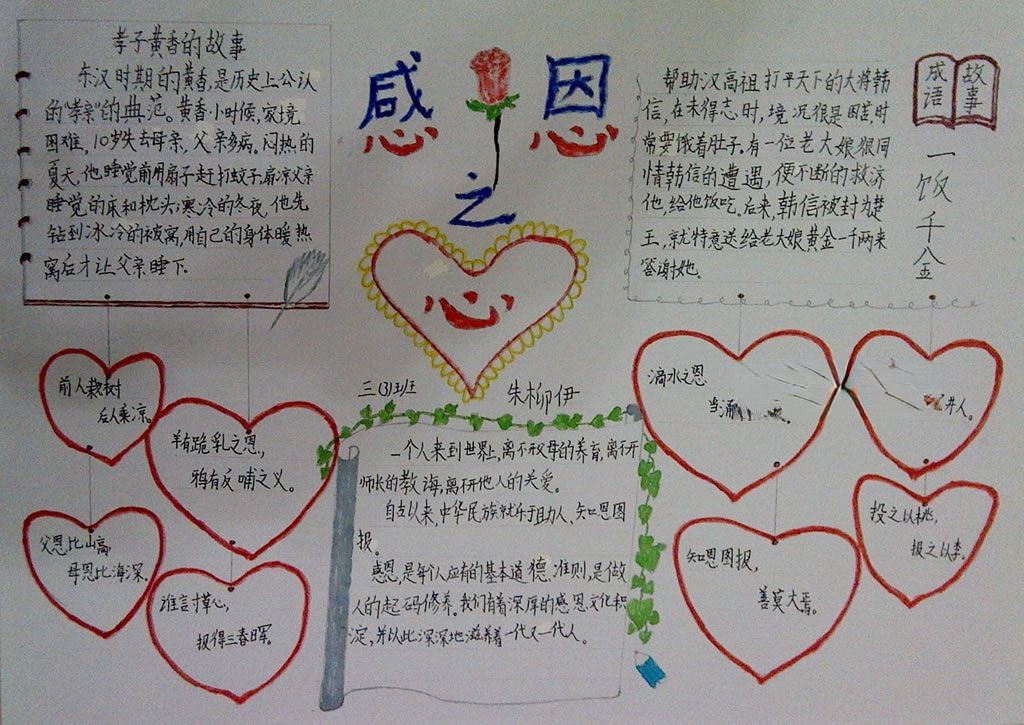 孝子黄香的故事
东汉时期的黄香,是历史上公认
的"孝亲"的典范。黄香小时候,家境
困难,10岁失去母亲,父亲多病。闷热的
夏天,他睡觉前用扇子赶打蚊子,扇凉父亲
睡觉的床和枕头;寒冷的冬夜,他先
钻到冰冷的被窝,用自己的身体暖热
窝后才让父亲睡下.
感恩
之
心
三(3)班 朱柳伊
帮助汉高祖打平天下的大将韩
信,在未得志时,境况很是困苦,时
常要饿着肚子.有一位老大娘很同
情韩信的遭遇,便不断的救济
他,给他饭吃。后来,韩信被封为楚
王,就特意送给老大娘黄金一千两来
答谢她。
成语故事
一饭千金
前人栽树
后人乘凉。
羊有跪乳之恩,
鸦有反哺之义。
父恩比山高,
母恩比海深。
谁言寸草心,
报得三春晖。
一个人来到世界上,离不开父母的养育,离不开
师长的教海,离不开他人的关爱。
自古以来,中华民族就乐于助人、知恩图
报。
感恩,是每个人应有的基本道德准则,是做
人的起码修养。我们有着深厚的感恩文化积
淀,并以此深深地滋养着一代又一代人。
滴水之恩
当涌
井人。
知恩图报,
善莫大焉。
投之以桃,
报之以李。